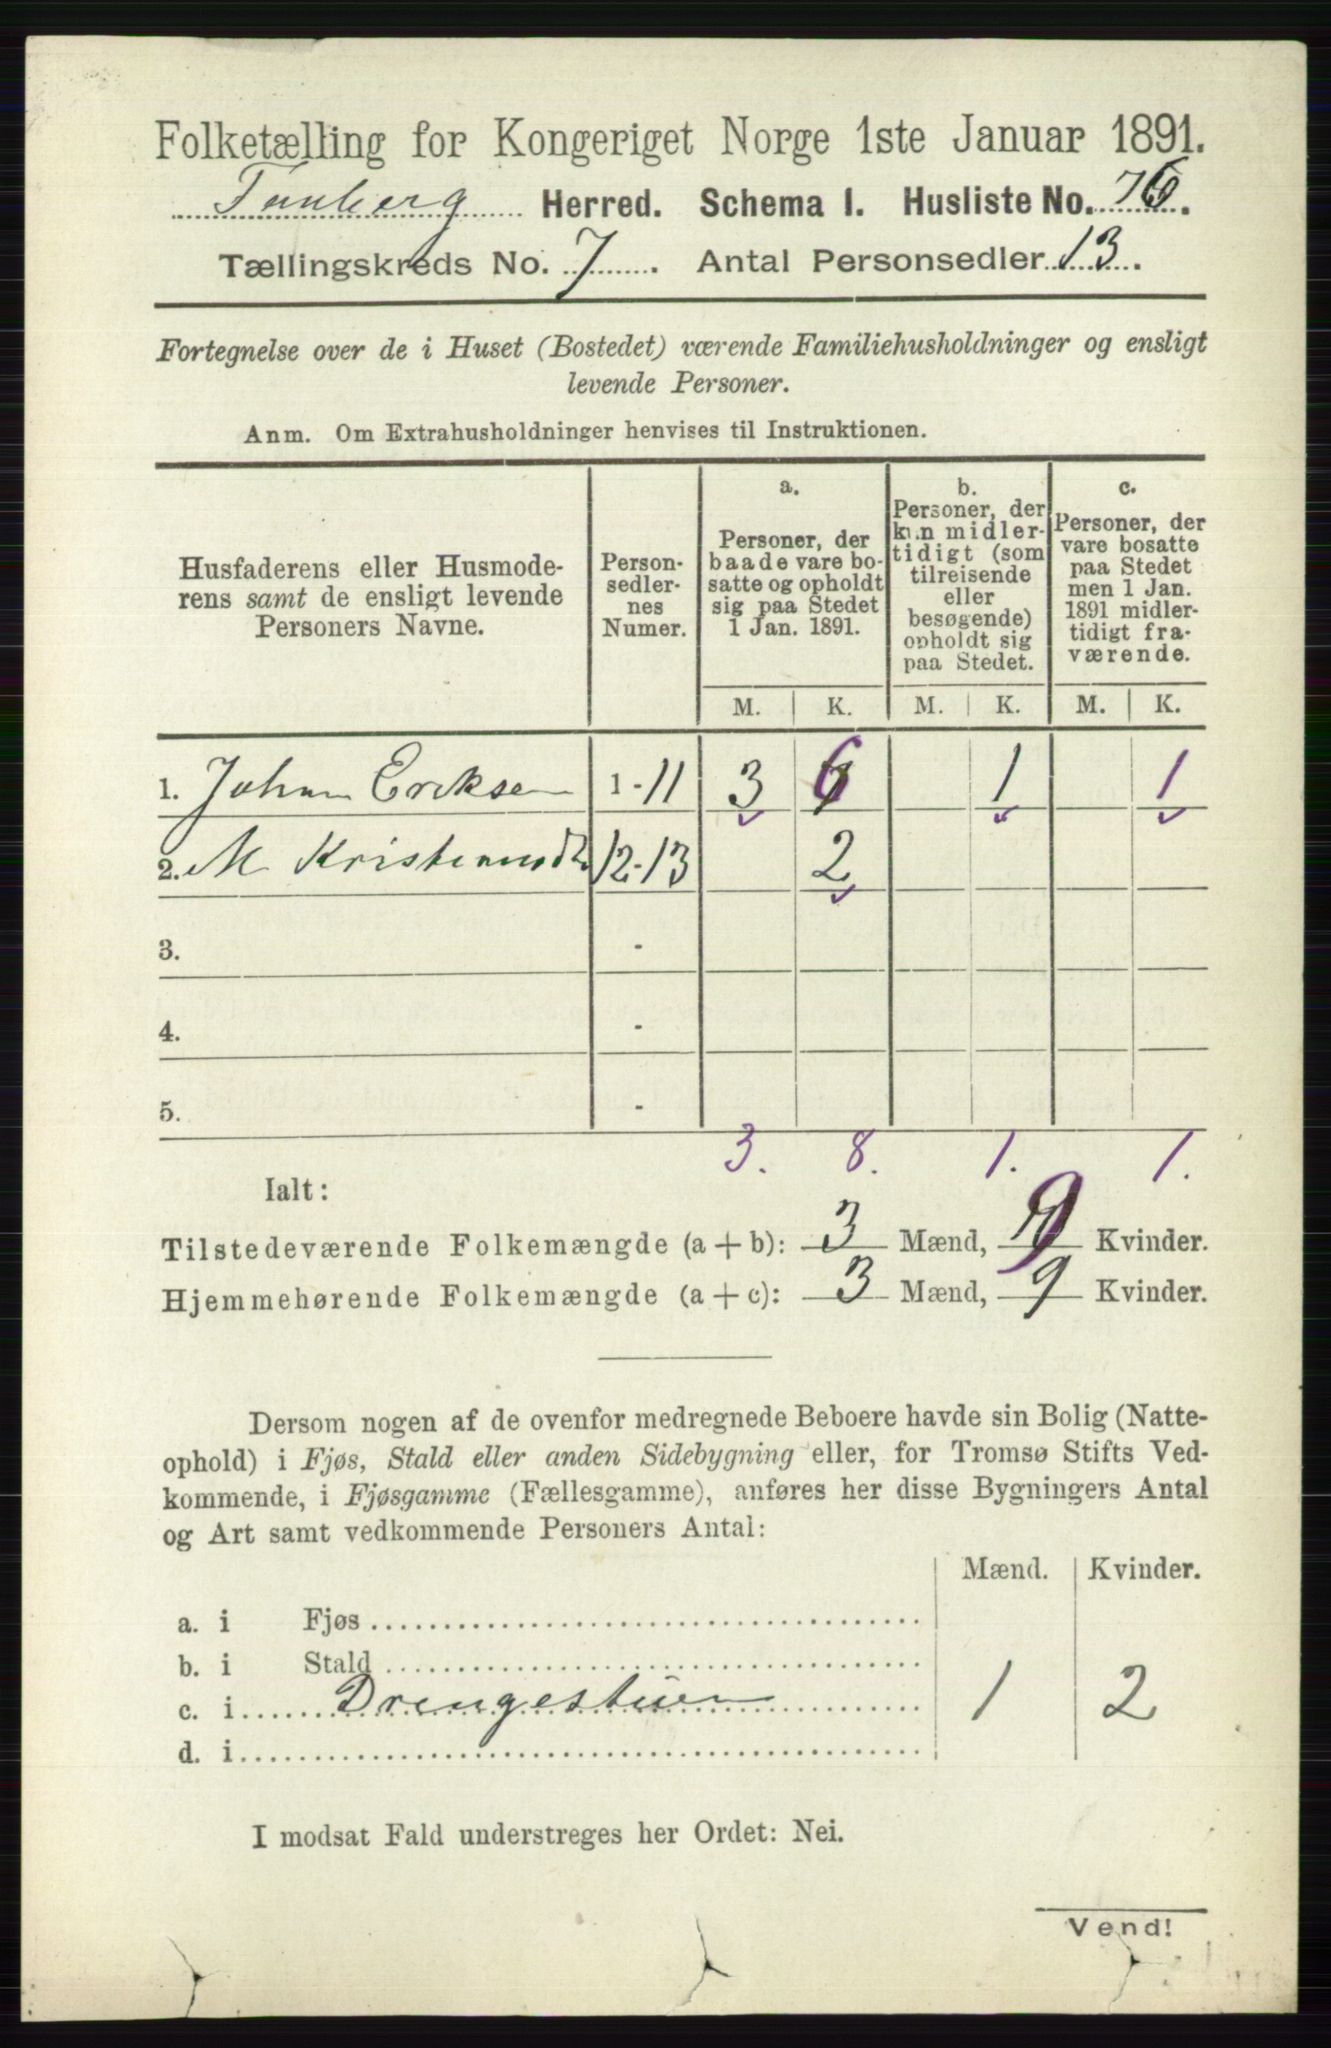 Folketælling for Kongeriget Norge 1ste Januar 1891.
Tunberg Herred. Schema I. Husliste No. 76.
Tællingskreds No. 7. Antal Personsedler 13.
Fortegnelse over de i Huset (Bostedet) værende Familiehusholdninger og ensligt
levende Personer.
Anm. Om Extrahusholdninger henvises til Instruktionen.
Husfaderens eller Husmode-
rens samt de ensligt levende
Personers Navne.
Person-
sedler-
nes
Numer.
a.
Personer, der
baade vare bo-
satte og opholdt
sig paa Stedet
1 Jan. 1891.
b.
Personer, der
kun midler-
tidigt (som
tilreisende
eller
besøgende)
opholdt sig
paa Stedet.
c.
Personer, der
vare bosatte
paa Stedet
men 1 Jan.
1891 midler-
tidigt fra-
værende.
M. K. M. K. M. K.
1. Johan Eriksen 1-11 3 6 1 1
2. M 12-13 2
3. -
4. -
5. -
3. 8. 1. 1.
Ialt:
Tilstedeværende Folkemængde (a+b): 3 Mænd, 9 Kvinder.
Hjemmehørende Folkemængde (a+c): 3 Mænd, 9 Kvinder.
Dersom nogen af de ovenfor medregnede Beboere havde sin Bolig (Natte-
ophold) i Fjøs, Stald eller anden Sidebygning eller, for Tromsø Stifts Ved-
kommende, i Fjøsgamme (Fællesgamme), anføres her disse Bygningers Antal
og Art samt vedkommende Personers Antal:
Mænd. Kvinder.
a. i Fjøs
b. i Stald
c. i Drengestuen 1 2
d. i
I modsat Fald understreges her Ordet: Nei.
Vend!